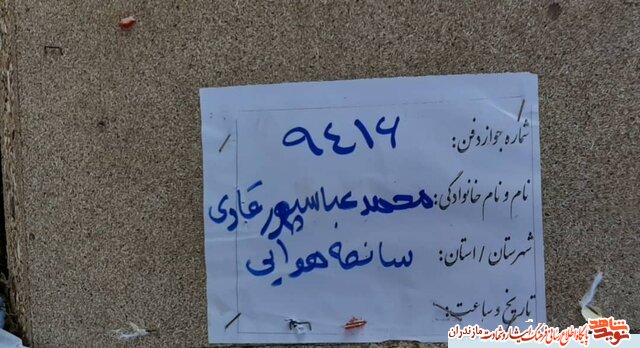 شماره جواز دفن: ۹۴۱۶
نام و نام خانوادگی: محمد عباسپور عادی
شهرستان / استان: سانحه هوایی
تاریخ و ساعت:
نوید شاهد پایگاه اطلاع رسانی فرهنگ ایثار و شهادت مازندران